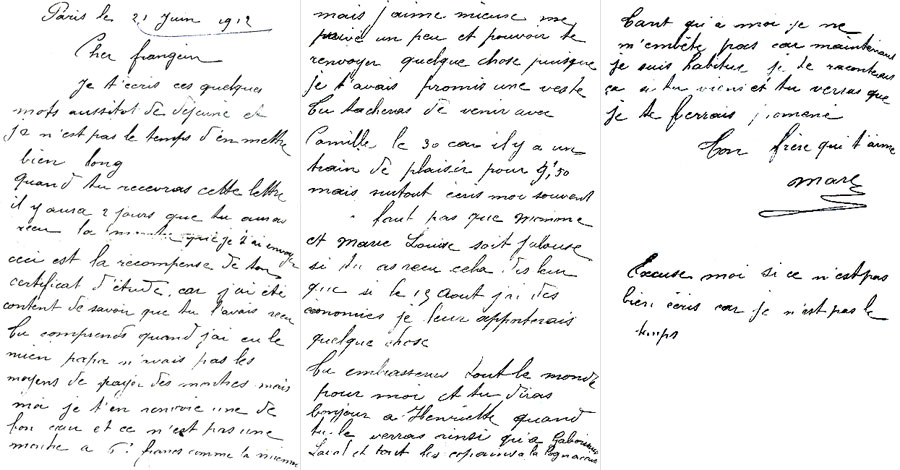 Paris le 21 Juin 1912
Cher frangin
Je t'écris ces quelques
mots aussitot de déjeuné et
je n'est pas le temps d'en mettre
bien long
quand tu recevras cette lettre
il y aura 2 jours que tu auras
recu la montre que je t'ai envoyer
ceci est la recompense de ton
certificat d'étude, car j'ai été
content de savoir que tu l'avais recu
Tu comprends quand j'ai eu le
mien papa n'avais pas les
moyens de payer des montres mais
moi je t'en renvoie une de
bon cœur et ce n'est pas une
montre a 5 francs comme la mienne
mais j'aime mieuse me
privé un peu et pouvoir te
renvoyer quelque chose puisque
je t'avais promis une veste
Tu tacheras de venir avec
Camille le 30 car il y a un
train de plaisir pour 9,50
mais surtout écris moi souvent
faut pas que Mimine
et Marie Louise soit jalouse
si tu as recu cela dis leur
que si le 15 Aout j'ai des
économies je leur apporterais
quelque chose
Tu embrasseras tout le monde
pour moi et tu diras
bonjour a Henriette quand
tu le verras ainsi qu'a
Laval et tout les copains a la
Tant qu'a moi je ne
m'embête pas car maintenant
je suis habitue je te raconterais
ça si tu viens et tu verras que
je te ferrais
Ton frère qui t'aime
Marc
Excuse moi si ce n'est pas
bien écris car je n'est pas le
temps